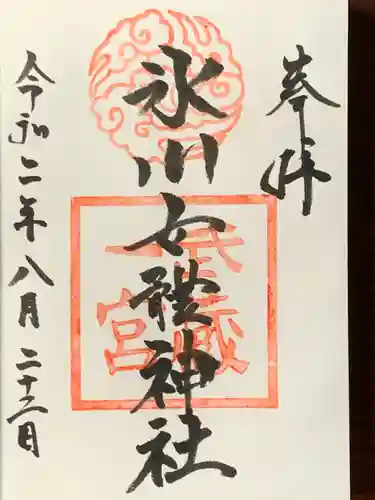 奉拝
氷川女體神社
武蔵
一宮
令和二年八月二十二日